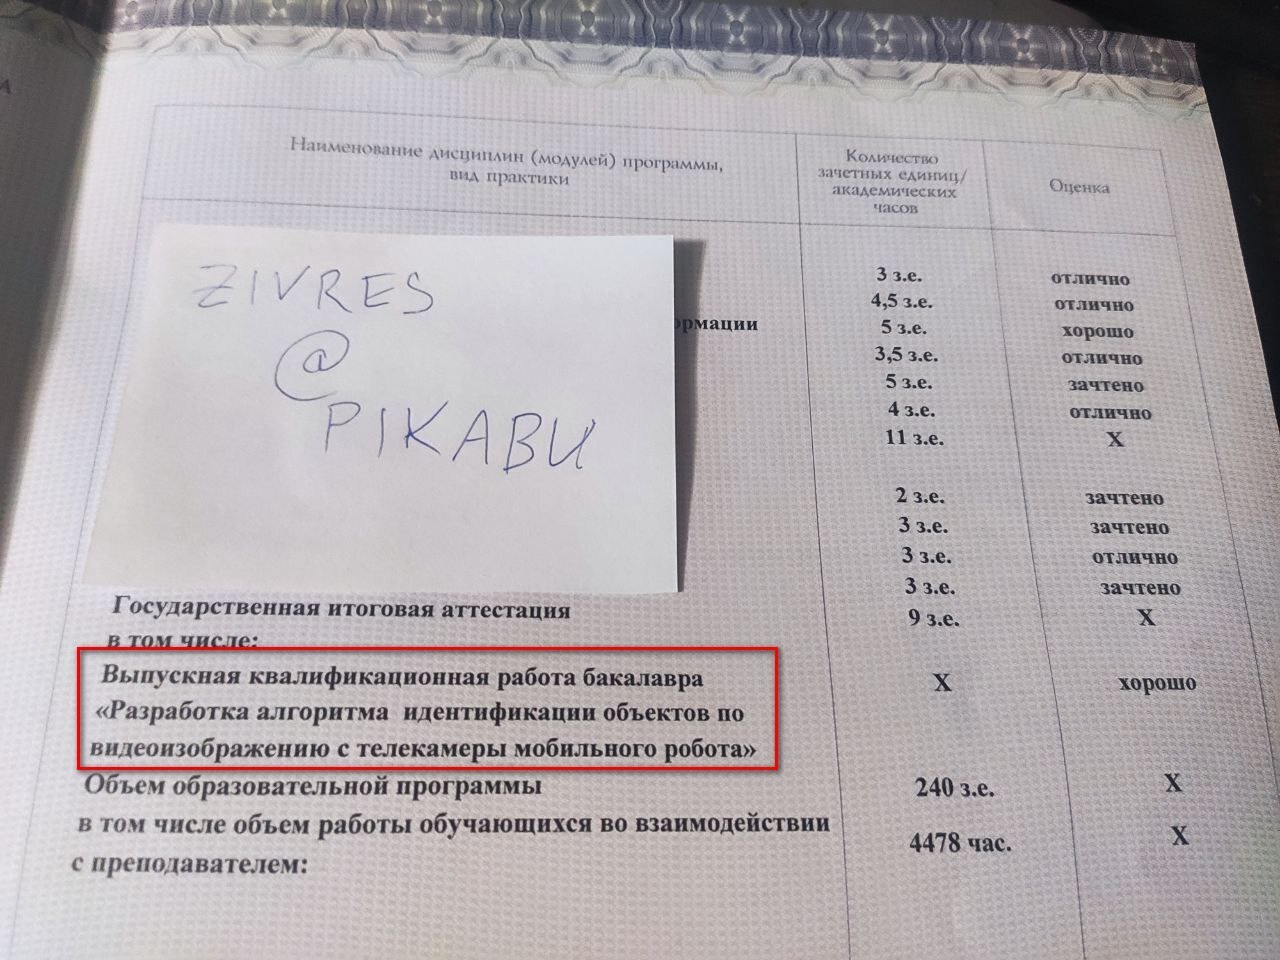 Наименование дисциплин (модулей) программы,
вид практики
Количество
зачетных единиц/
академических
часов
Оценка
ZIVRES
@
PIKABU
3 з.е. отлично
4,5 з.е. отлично
5 з.е. хорошо
3,5 з.е. отлично
5 з.е. зачтено
4 з.е. отлично
11 з.е. X
2 з.е. зачтено
3 з.е. зачтено
3 з.е. отлично
3 з.е. зачтено
Государственная итоговая аттестация 9 з.е. X
в том числе:
Выпускная квалификационная работа бакалавра X хорошо
«Разработка алгоритма идентификации объектов по
видеоизображению с телекамеры мобильного робота»
Объем образовательной программы 240 з.е. X
в том числе объем работы обучающихся во взаимодействии
с преподавателем: 4478 час. X